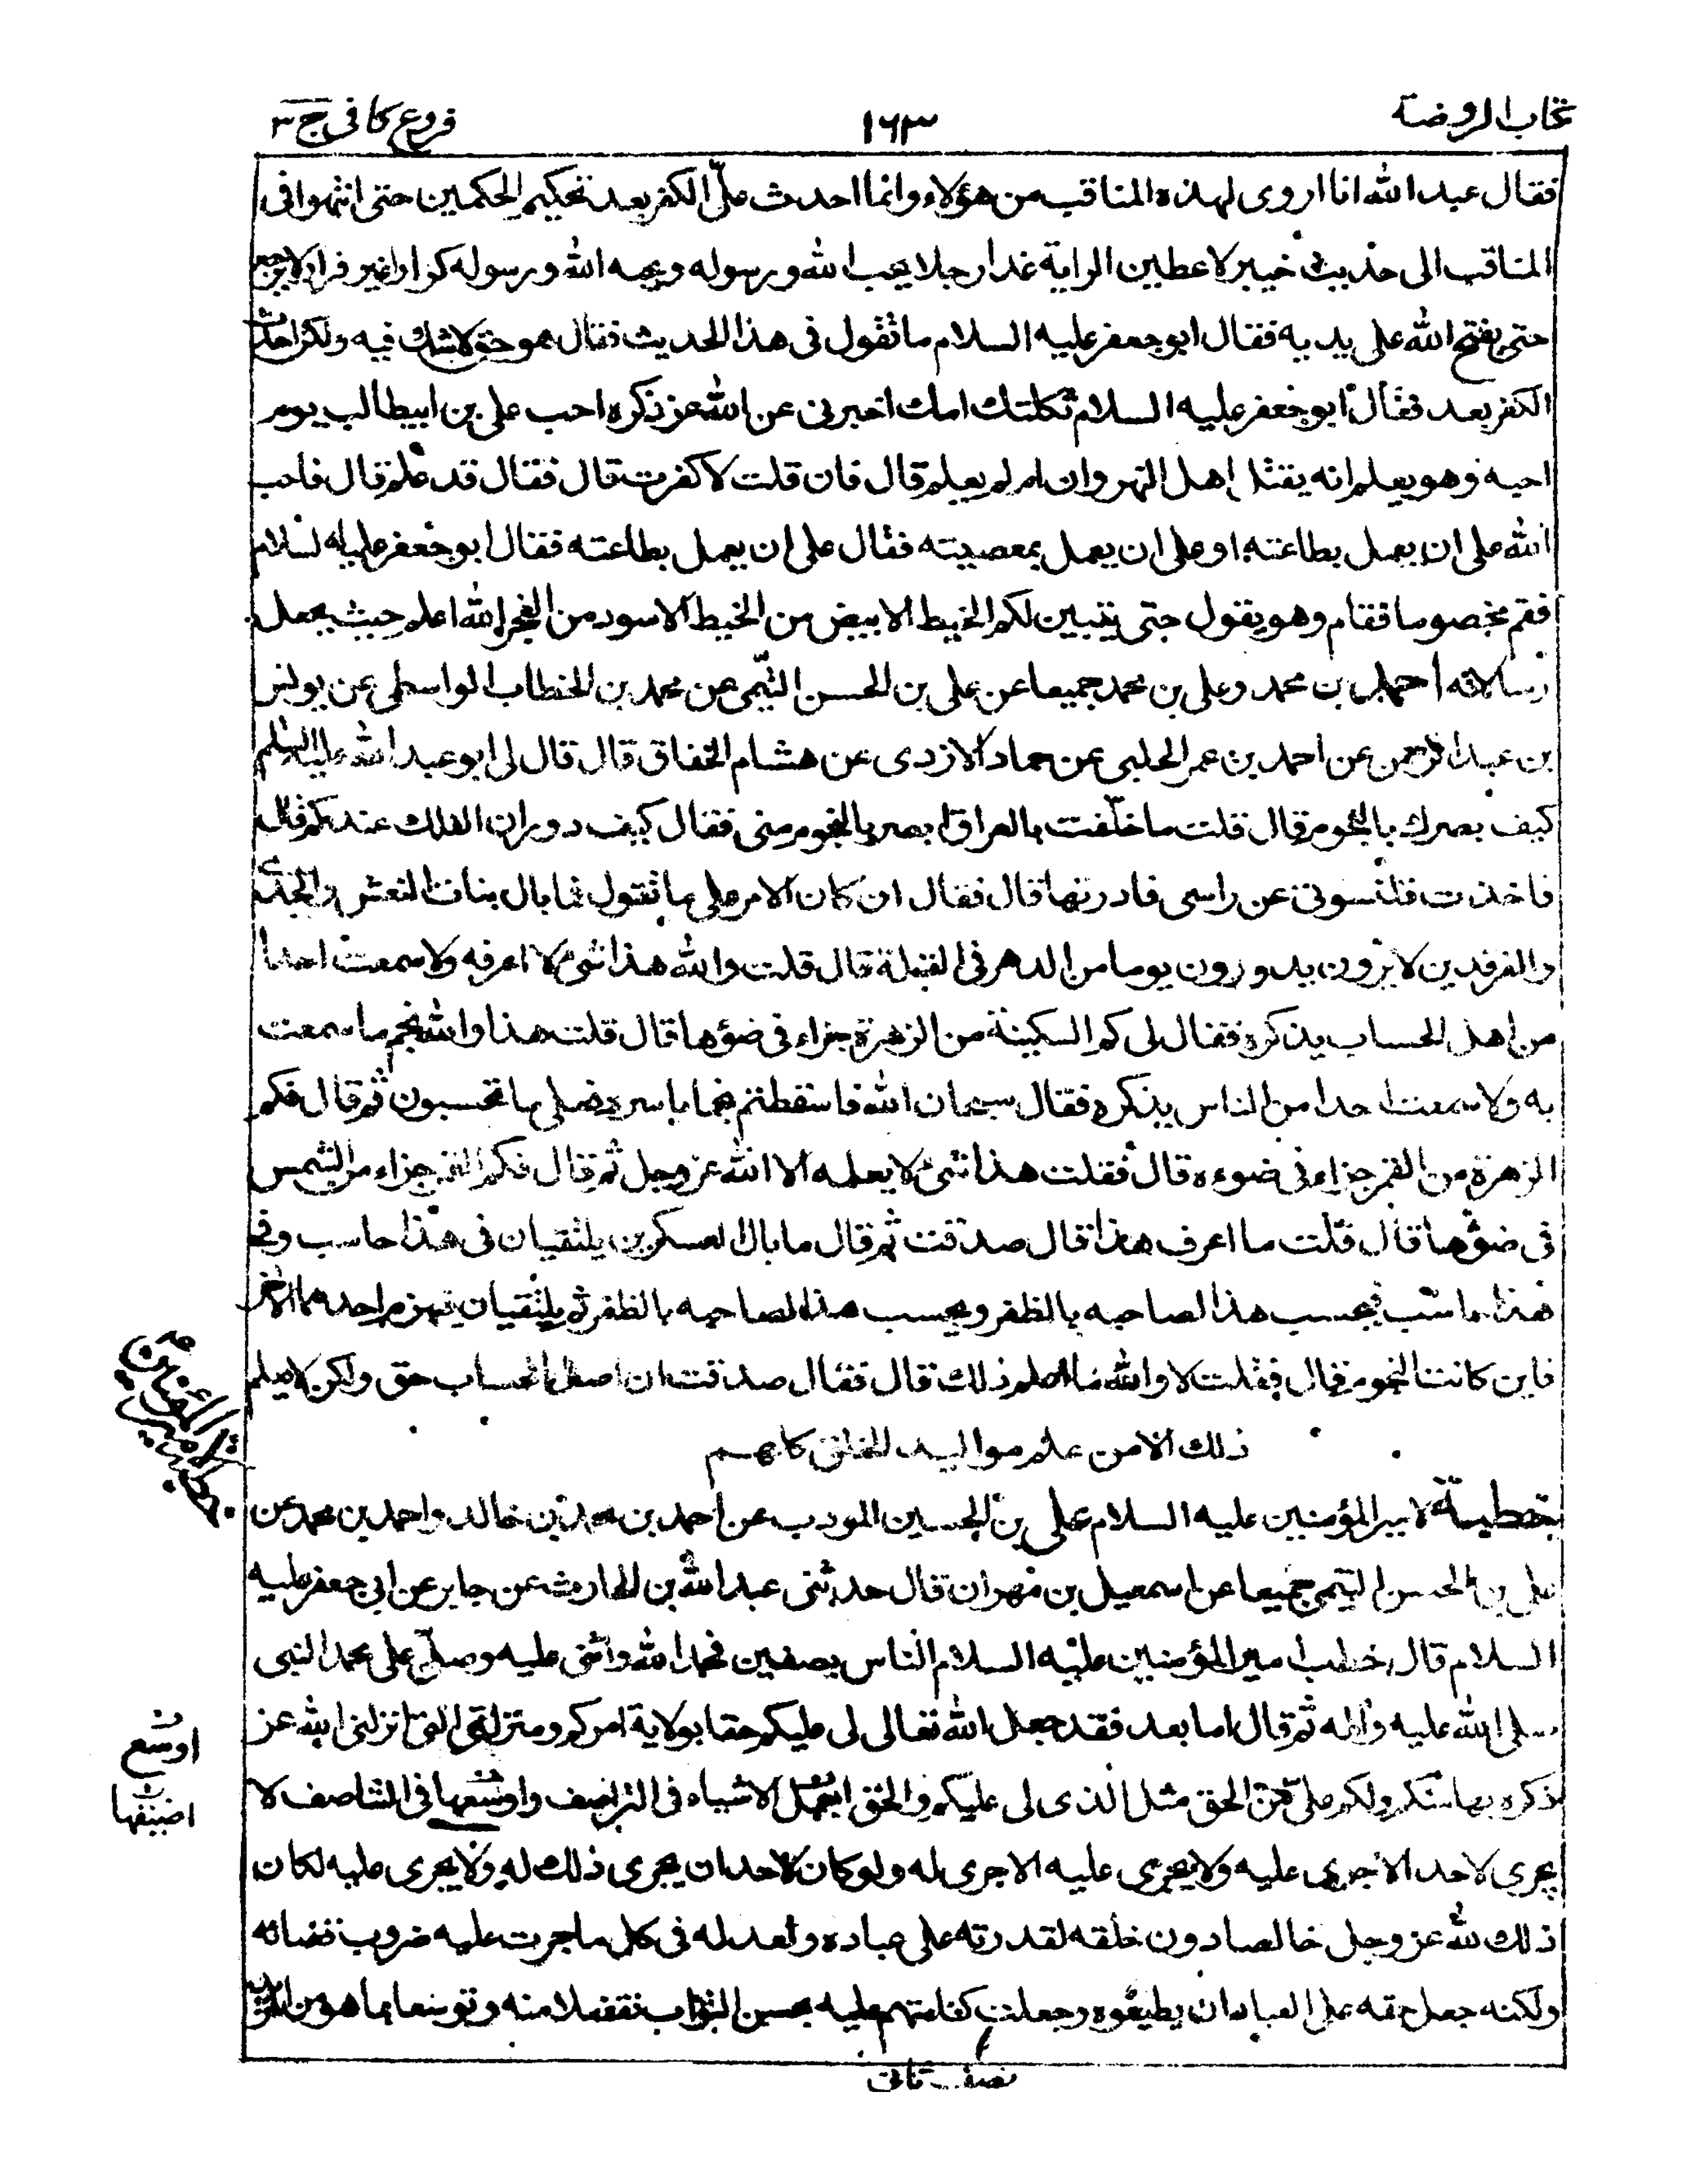 كتاب الروضة
١٦٣
فروع كافي ج ٣
فقال عبد الله انا اروى لهذه المناقب من هؤلاء وانما احدث علىّ الكفر بعد تحكيم الحكمين حتى انتهوا فى
المناقب الى حديث خيبر لاعطين الراية غدا رجلا يحب الله ورسوله ويحبه الله ورسوله كرارا غير فرار لا يرجع
حتى يفتح الله على يديه فقال ابو جعفر عليه السلام ما تقول فى هذا الحديث فقال هو حق لا شك فيه ولكن احدث
الكفر بعد فقال ابو جعفر عليه السلام ثكلتك امك اخبرنى عن الله عز ذكره احب على بن ابيطالب يوم
احبه وهو يعلم انه يقتل اهل النهروان ام لم يعلم قال فان قلت لا كفرت قال فقال قد علم قال فاحبه
الله على ان يعمل بطاعته او على ان يعمل بمعصيته فقال على ان يعمل بطاعته فقال ابو جعفر عليه السلام
فقم مخصوما فقام وهو يقول حتى يتبين لكم الخيط الابيض من الخيط الاسود من الفجر الله اعلم حيث يجعل
رسالاته احمد بن محمد وعلى بن محمد جميعا عن على بن الحسن التيمى عن محمد بن الخطاب الواسطى عن يونس
بن عبد الرحمن عن احمد بن عمر الحلبى عن حماد الازدى عن هشام الخفاق قال قال لى ابو عبد الله عليه السلم
كيف بصرك بالنجوم قال قلت ما خلّفت بالعراق ابصر بالنجوم منى فقال كيف دوران الفلك عندكم قال
فاخذت قلنسوتى عن راسى فادرتها قال فقال ان كان الامر على ما تقول فما بال بنات النعش والجدى
والفرقدين لا يرون يدورون يوما من الدهر فى القبلة قال قلت والله هذا شئ لا اعرفه ولا سمعت احدا
من اهل الحساب يذكره فقال لى كم السكينة من الزهرة جزاء فى ضوءها قال قلت هذا والله نجم ما سمعت
به ولا سمعت احدا من الناس يذكره فقال سبحان الله فاسقطتم نجما باسره فعلى ما تحسبون ثم قال فكم
الزهرة من القمر جزاء فى ضوءه قال فقلت هذا شئ لا يعلمه الا الله عز وجل ثم قال فكم القمر جزاء من الشمس
فى ضوؤها قال قلت ما اعرف هذا قال صدقت ثم قال ما بال العسكرين يلتقيان فى هذا حاسب وفى
هذا حاسب فيحسب هذا لصاحبه بالظفر ويحسب هذا لصاحبه بالظفر ثم يلتقيان فيهزم احدهما الاخر
فاين كانت النجوم قال فقلت لا والله ما اعلم ذلك قال فقال صدقت ان اصل الحساب حق ولكن لا يعلم
ذلك الا من علم مواليد الخلق كلهم
خطبة لامير المؤمنين عليه السلام على بن الحسين المودب عن احمد بن محمد بن خالد واحمد بن محمد عن
على بن الحسن التيمى جميعا عن اسمعيل بن مهران قال حدثنى عبد الله بن الحارث عن جابر عن ابى جعفر عليه
السلام قال خطب امير المؤمنين عليه السلام الناس بصفين فحمد الله واثنى عليه وصلّى على محمد النبى
صلى الله عليه واله ثم قال اما بعد فقد جعل الله تعالى لى عليكم حقا بولاية امركم ومنزلتى التى انزلنى الله عز
ذكره بها منكم ولكم علىّ من الحق مثل الذى لى عليكم والحق اجمل الاشياء فى التواصف واوسعها فى التناصف لا
يجرى لاحد الا جرى عليه ولا يجرى عليه الا جرى له ولو كان لاحد ان يجرى ذلك له ولا يجرى عليه لكان
ذلك لله عز وجل خالصا دون خلقه لقدرته على عباده ولعدله فى كل ما جرت عليه ضروب قضائه
ولكنه جعل حقه على العباد ان يطيعوه وجعل كفارتهم عليه بحسن الثواب تفضلا منه وتوسعا بما هو من المزيد
اوسع
اضيقها
نصف ثانى